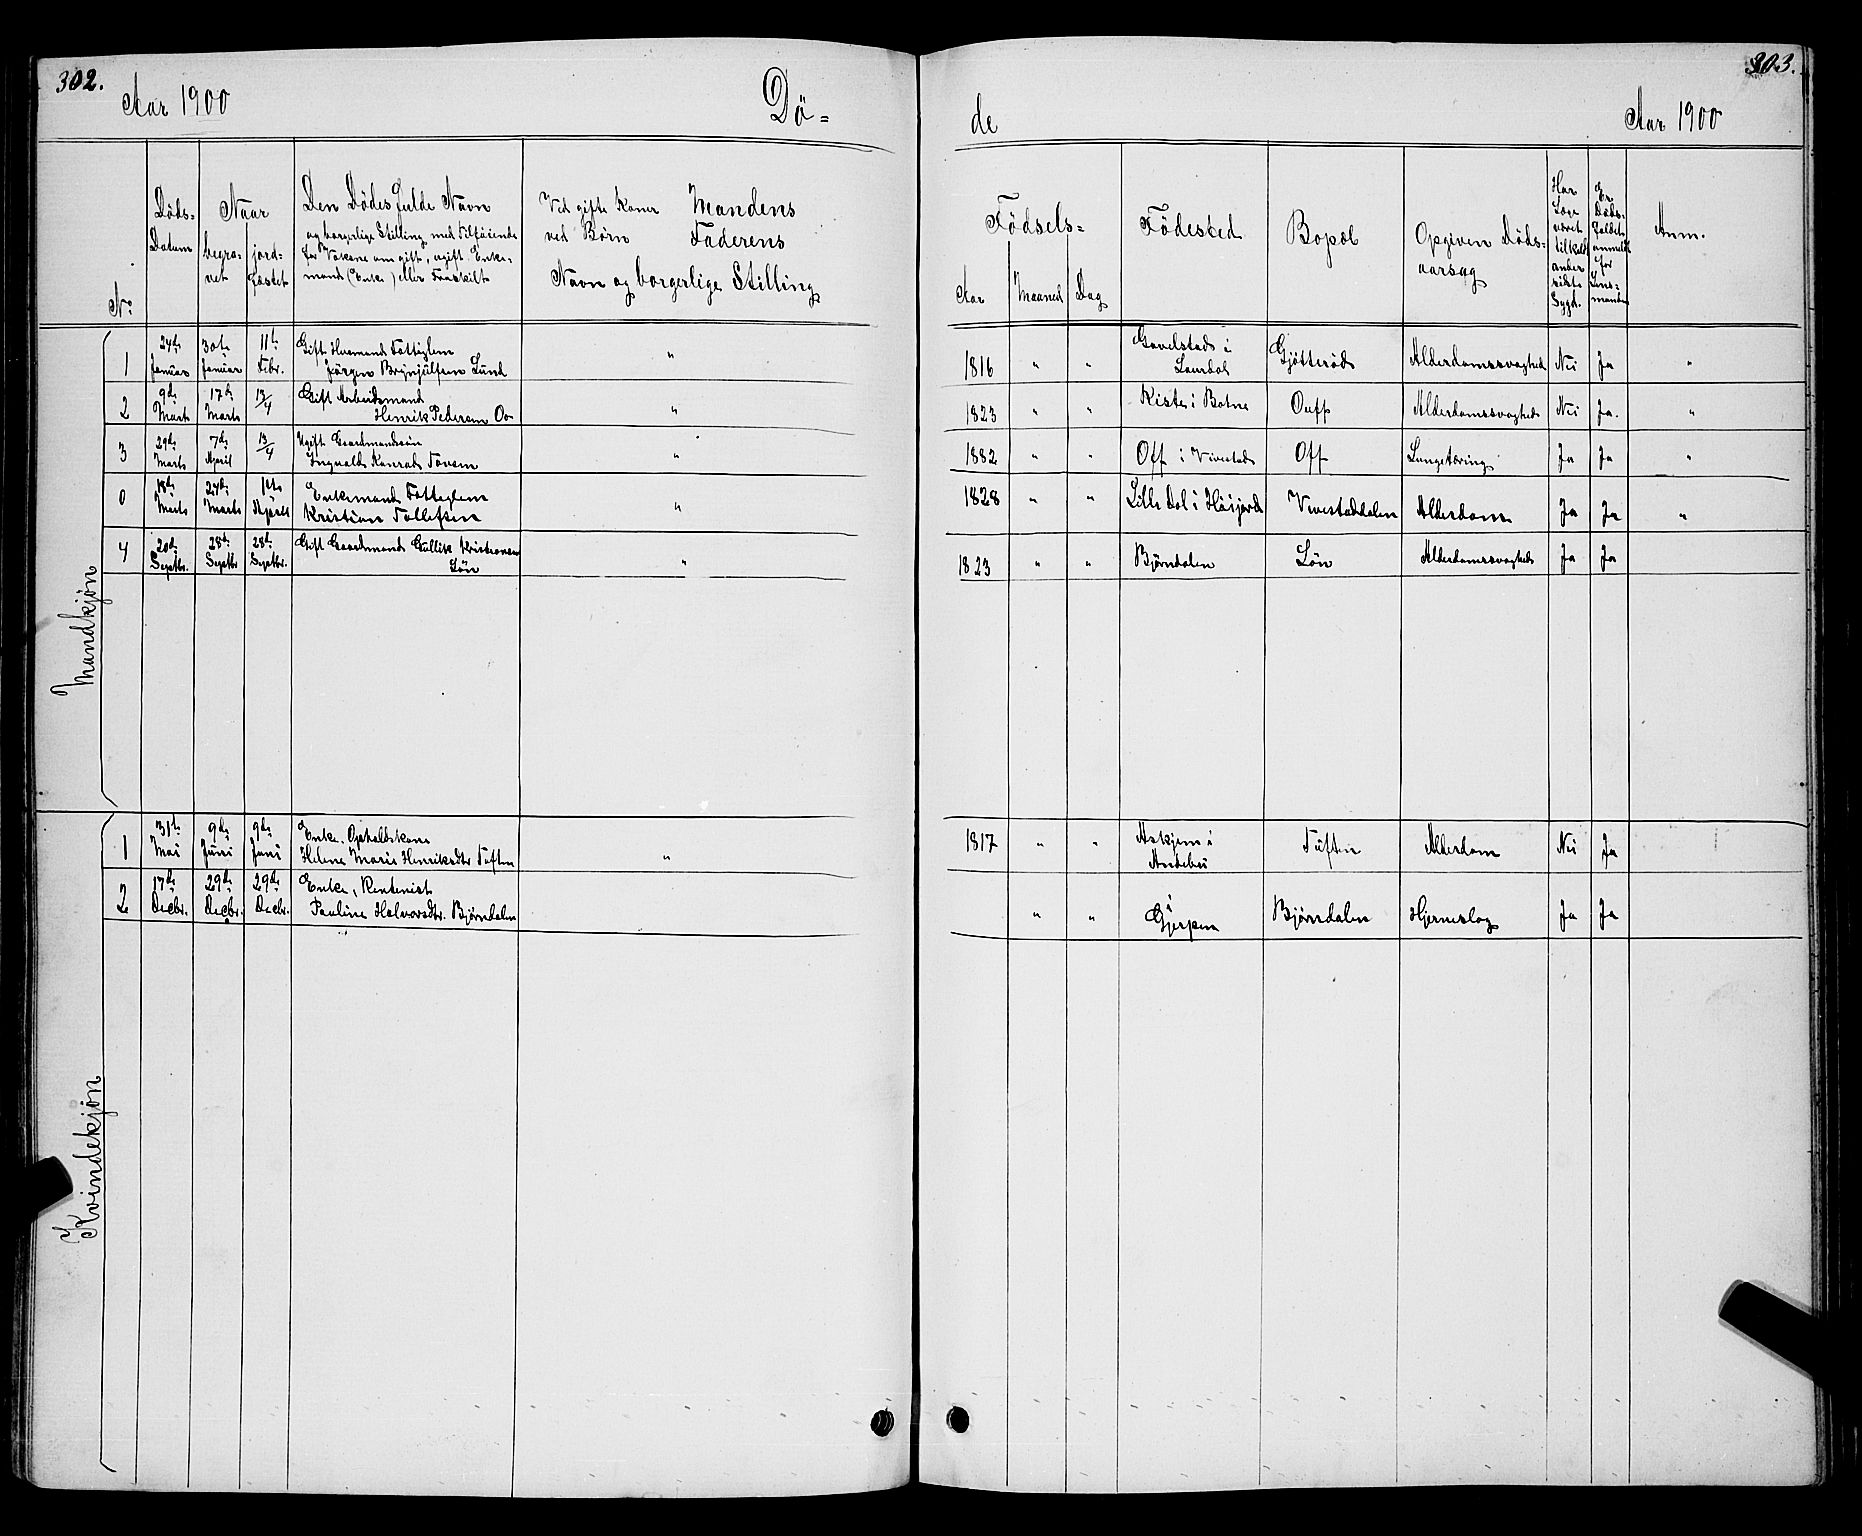 302.
Aar 1900
Dö-
de
Aar 1900
303.
No
Döds-
Datum
Naar
begra-
vet
jord-
fæstet
Den Dödes fulde Navn
og borgerlige Stilling, med Tilføiende
for Voksne om gift, ugift Enke-
mand (Enke) eller Fraskilt
Ved gifte Koner Mandens
ved Börn Faderens
Navn og borgerlige Stilling
Födsels-
Aar Maaned Dag
Födested
Bopæl
Opgiven Döds-
aarsag
Har
Læge
været
tilkaldt
under
sidste
Sygd.
Er
Döds-
faldet
anmeldt
for
Lens-
manden
Anm.
Mandkjøn
1 24de Januar 30te Januar 11te Febr. Gift Huusmand Fattiglem
Jørgen Brynjulfsen Lund " 1816 " " Gavelstad i
Laurdal Gjötteröd Alderdomssvaghed Nei Ja "
2 9de Marts 17de Marts 13/4 Gift Arbeidsmand
Henrik Pedersen " 1823 " " Kiste i Botne Alderdomssvaghed Nei Ja. "
3 29de Marts 7de April 13/4 Ugift Gaardmandssön
Ingvald Konrad " 1882 " " Off i Vivestad Off Lungetæring Ja Ja "
0 18de Marts 24de Marts Enkemand Fattiglem
Kristian Tollefsen " 1828 " " Lille Dal i Høijord Vivestaddalen Alderdom Ja Ja "
4 20de Septbr. 28de Septbr 28de Septbr. Gift Gaardmand Gullik Kristensen
Lön " 1823 " " Björndalen Lön Alderdomssvaghed Ja Ja
Kvindekjøn
1 31te Mai 9de Juni 9de Juni Enke. Opholdskone
Helene Marie Henriksdtr Tuften " 1817 " " Askjem i
Andebu Tuften Alderdom Nei Ja
2 17de Decbr. 29de Decbr. 29de Decbr. Enke, Rentenist
Pauline Halvorsdtr. Bjørndalen " " i
Gjerpen Bjørndalen Hjerneslag Ja Ja